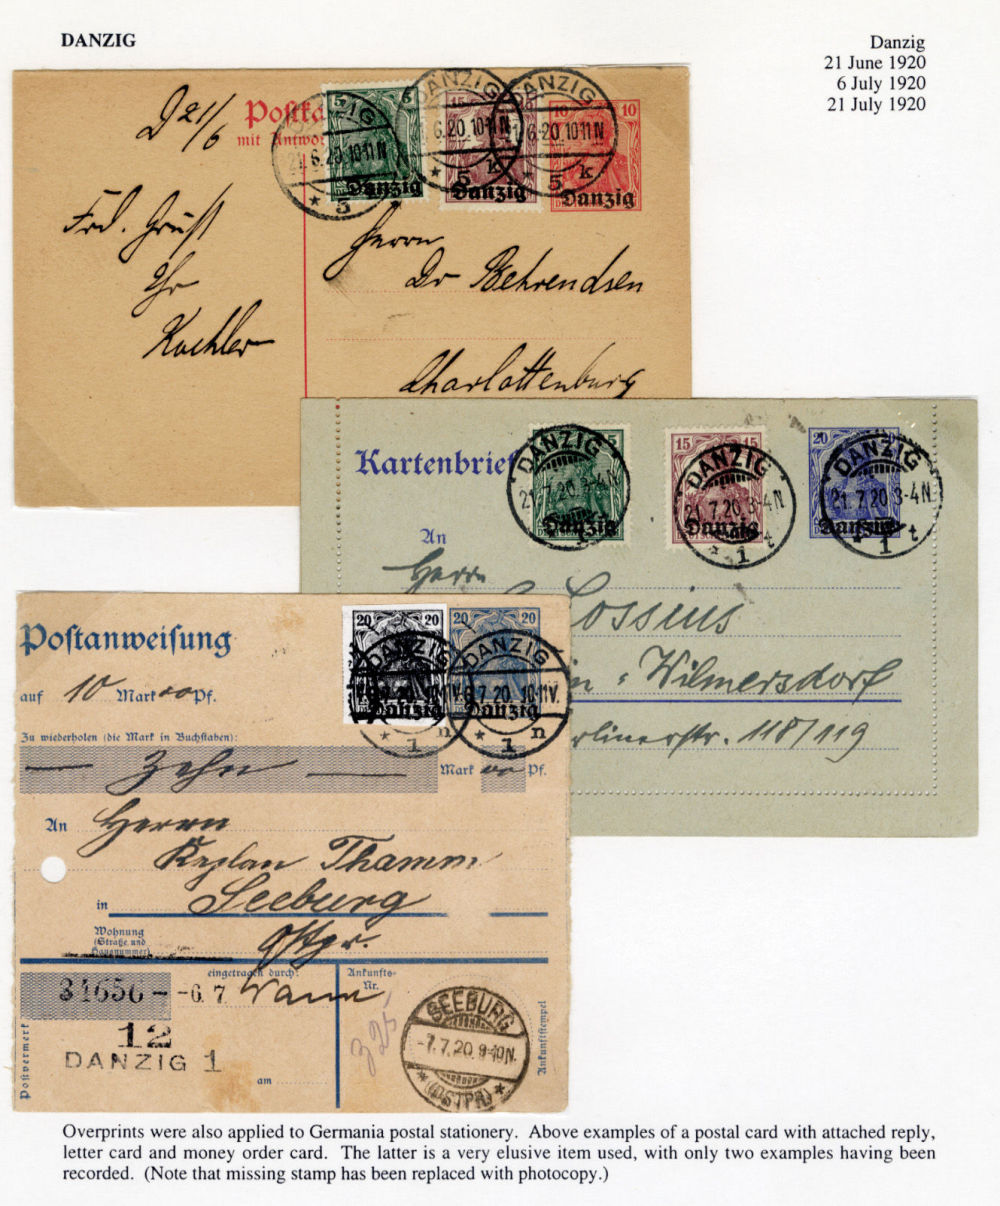 DANZIG
Danzig
21 June 1920
6 July 1920
21 July 1920
D 21/6
Postka
mit Antwor
5 5
15
10 10
DANZIG
21.6.20.10-11N
* 5
DANZIG
6.20.10-11N
* 5 k
DANZIG
6.20.10-11N
* 5 k
Danzig
Danzig
Danzig
Frd. Gruß
Ihr
Koehler
Herrn
Dr Behrendsen
Charlottenburg
Kartenbrief
5
15 15
20 20
DANZIG
21.7.20.3-4N
DANZIG
21.7.20.3-4N
* 1 t
DANZIG
21.7.20.3-4N
* 1 t
Danzig
Danzig
Danzig
An
Herrn
Lossius
in-Wilmersdorf
rlinerstr. 118/119
Postanweisung
20 20
20 20
DANZIG
7.20.10-11V.
* 1 n
DANZIG
6.7.20.10-11V.
* 1 n
Danzig
Danzig
auf 10 Mark 00 Pf.
Zu wiederholen (die Mark in Buchstaben):
— Zehn — Mark 00 Pf.
An Herrn
Kaplan Thamm
in Seeburg
Wohnung
(Straße und
Hausnummer)
Ostpr.
eingetragen durch:
Ankunfts-
Nr.
34656 - -6.7
12
DANZIG 1
am
Postvermerk
Ankunftstempel
SEEBURG
-7.7.20.9-10N.
* (OSTPR) *
Overprints were also applied to Germania postal stationery. Above examples of a postal card with attached reply,
letter card and money order card. The latter is a very elusive item used, with only two examples having been
recorded. (Note that missing stamp has been replaced with photocopy.)